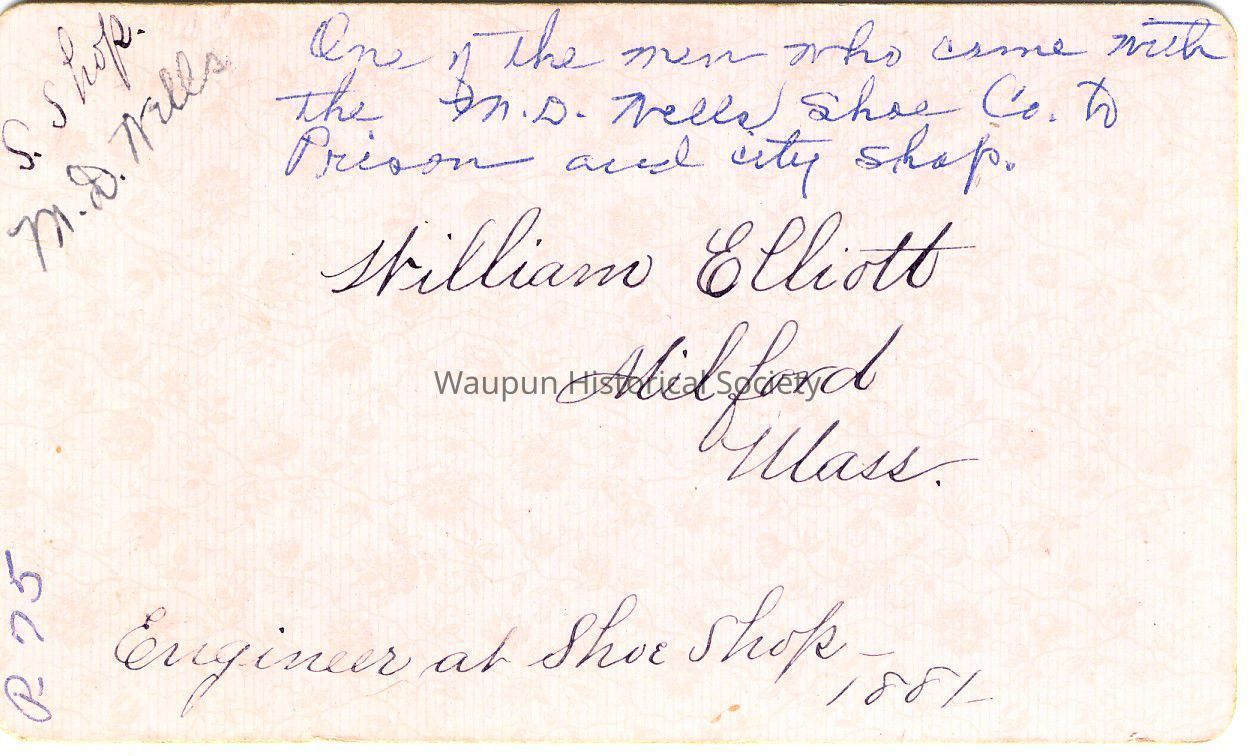 S. Shop.
M.D. Wells
One of the men who came with
the M.D. Wells Shoe Co. to
Prison and city shop.
William Elliott
Milford
Mass.
Waupun Historical Society
Engineer at Shoe Shop –
1881–
P. 75